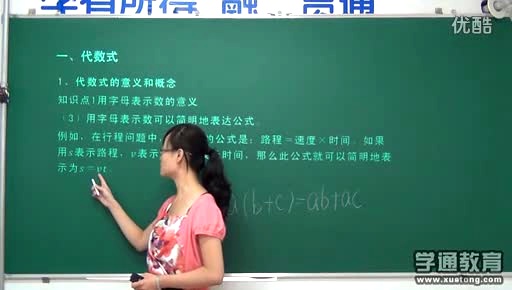 学有所得 融 贯通
优酷
一、代数式
1、代数式的意义和概念
知识点1用字母表示数的意义
（3）用字母表示数可以简明地表达公式。
例如，在行程问题中 的公式是：路程＝速度×时间。如果
用s表示路程，v表示 时间，那么此公式就可以简明地表
示为s＝vt。
a(b+c)=ab+ac
学通教育
www.xuetong.com